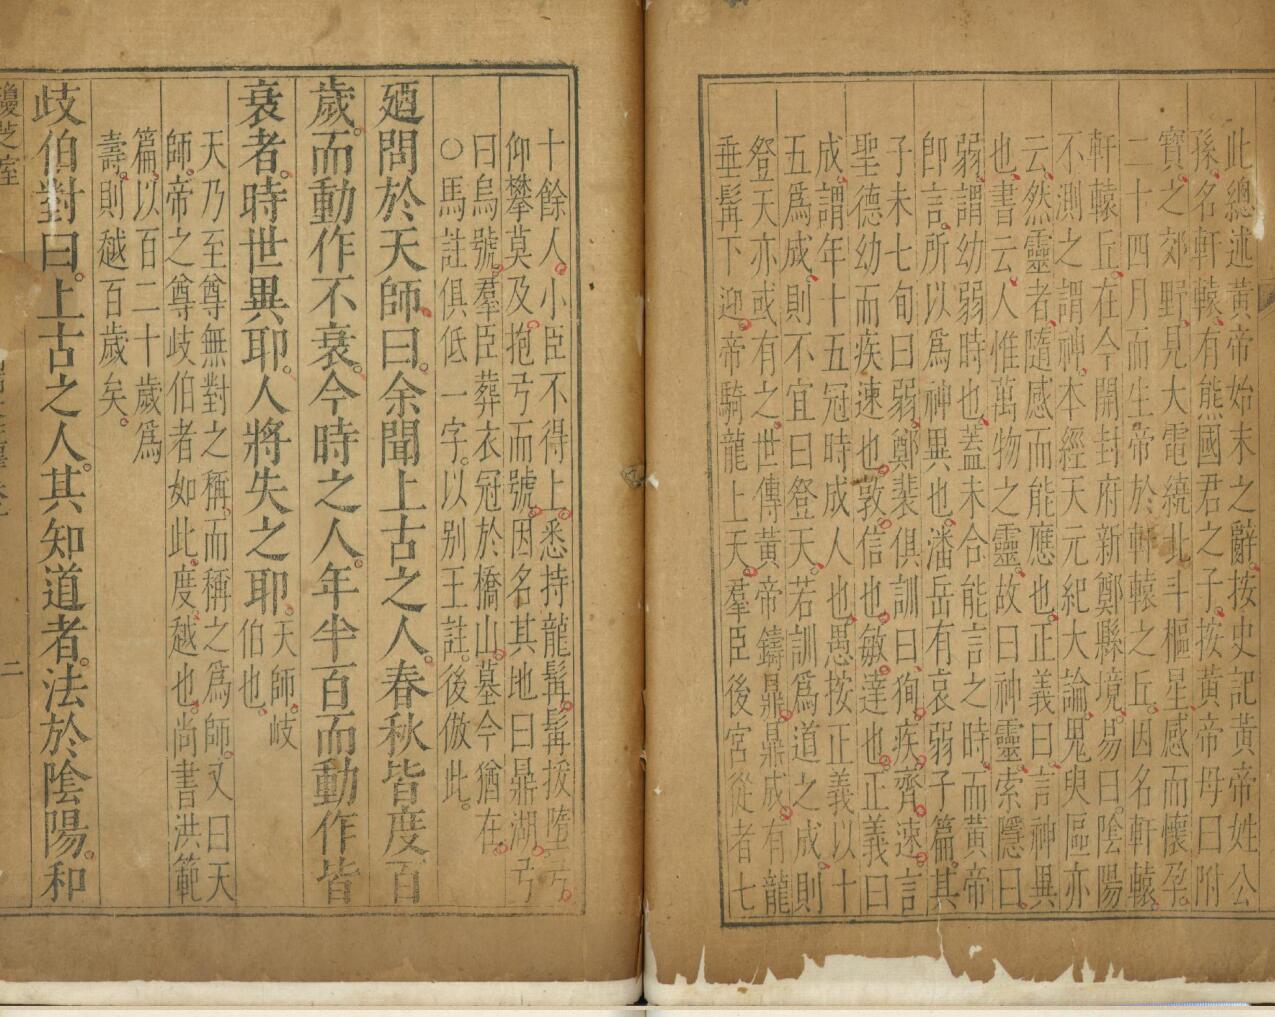 此總述黃帝始末之辭按史記黃帝姓公
孫名軒轅有熊國君之子按黃帝母曰附
寶之郊野見大電繞北斗樞星感而懷孕
二十四月而生帝於軒轅之丘因名軒轅
軒轅丘在今開封府新鄭縣境易曰陰陽
不測之謂神本經天元紀大論鬼臾區亦
云然靈者隨感而能應也正義曰言神異
也書云人惟萬物之靈故曰神靈索隱曰
弱謂幼弱時也蓋未合能言之時而黃帝
卽言所以爲神異也潘岳有哀弱子篇其
子未七旬曰弱鄭裴俱訓曰狥疾齊速言
聖德幼而疾速也敦信也敏達也正義曰
成謂年十五冠時成人也愚按正義以十
五爲成則不宜曰登天若訓爲道之成則
登天亦或有之世傳黃帝鑄鼎鼎成有龍
垂髯下迎帝騎龍上天羣臣後宮從者七
十餘人小臣不得上悉持龍髯髯拔墮弓
仰攀莫及抱弓而號因名其地曰鼎湖弓
曰烏號羣臣葬衣冠於橋山墓今猶在
○馬註俱低一字以別王註後倣此
廼問於天師曰余聞上古之人春秋皆度百
歲而動作不衰今時之人年半百而動作皆
衰者時世異耶人將失之耶天師岐
伯也
天乃至尊無對之稱而稱之爲師又曰天
師帝之尊岐伯者如此度越也尚書洪範
篇以百二十歲爲
壽則越百歲矣
歧伯對曰上古之人其知道者法於陰陽和
二